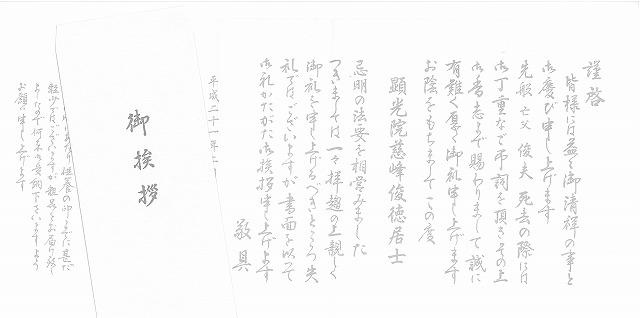 謹啓
皆様には益々御清祥の事と
御慶び申し上げます
先般 亡父 俊夫 死去の際には
御丁重なご弔詞を頂きその上
御香志まで賜わりまして 誠に
有難く厚く御礼申し上げます
お陰をもちまして この度
顕光院慈峰俊徳居士
忌明の法要を相営みました
つきましては一々拝趨の上親しく
御礼を申し上げるべきところ失
礼ではございますが書面を以って
御礼かたがた御挨拶申し上げます
敬具
平成二十一年二
御挨拶
供養の印までに 甚だ
軽少ではございますが 粗品をお届け致し
ました 何卒御受納下さいますよう
お願い申し上げます